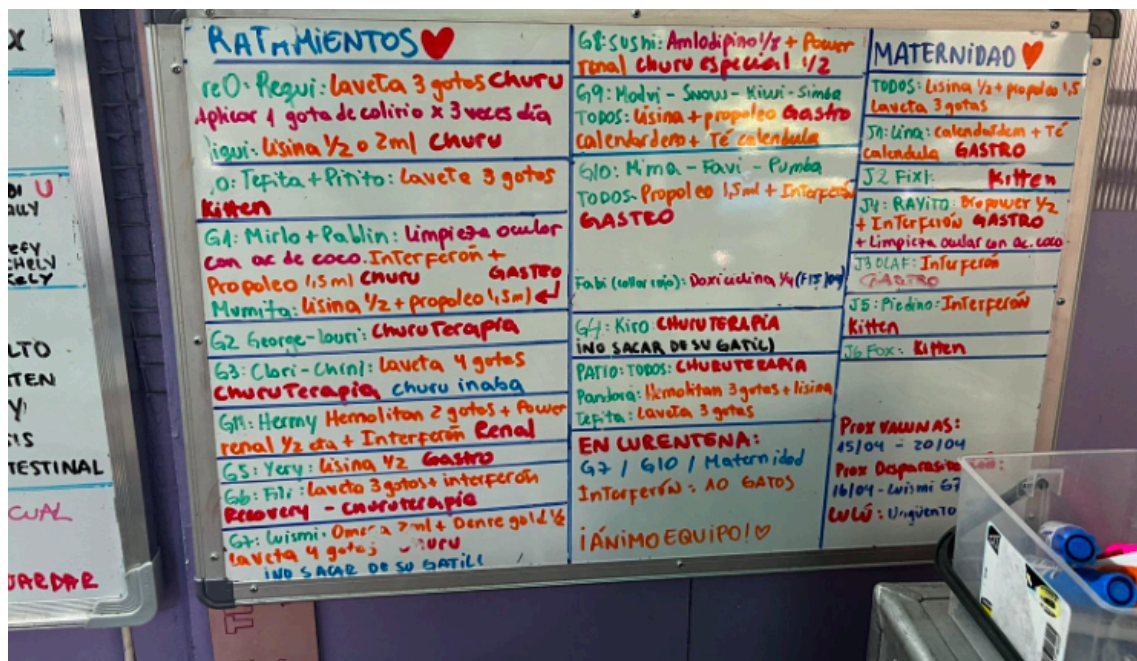 X
U
ALLY
LTO
TEN
TESTINAL
CUAL
JARDAR
RATAMIENTOS
Requi: Laveta 3 gotas Churu
Aplicar 1 gota de colirio x 3 veces día
Lisina 1/2 o 2ml Churu
Tefita + Pitito: Laveta 3 gotas
Kitten
G1: Mirlo + Pablin: Limpieza ocular
con ac de coco. Interferón +
Propoleo 1,5ml Churu GASTRO
Mumita: Lisina 1/2 + propoleo 1,5ml
G2 George - Louri: Churu Terapia
G3: Clori - Laveta 4 gotas
Churu Terapia churu inaba
Hermy Hemolitan 2 gotas + Power
renal 1/2 + Interferón Renal
G5: Yery: Lisina 1/2 Gastro
G6: Fili: Laveta 3 gotas + interferón
Recovery - churuterapia
G7: Luismi: 2ml + 1/2
Laveta 4 gotas
¡NO SACAR DE SU
G8: Sushi: Amlodipino 1/8 + Power
renal churu especial 1/2
G9: Snow - Kiwi - Simba
TODOS: Lisina + propoleo Gastro
calendardem + Té calendula
G10: Mima - Favi - Pumba
TODOS: Propoleo 1,5ml + Interferón
GASTRO
Fabi (collar rojo): Doxiciclina 1/4
Kiro: CHURUTERAPIA
¡NO SACAR DE SU GATIL!
PATIO: TODOS: CHURUTERAPIA
Pandora: Hemolitan 3 gotas + lisina
Tefita: Laveta 3 gotas
EN CURENTENA:
G7 / G10 / Maternidad
Interferón: 10 GATOS
¡ÁNIMO EQUIPO!
MATERNIDAD
TODOS: Lisina 1/2 + propoleo 1,5
Laveta 3 gotas
J1: Lina: calendardem + Té
calendula GASTRO
J2 Fixi: Kitten
J4: RAYITO: 1/2
+ Interferón GASTRO
+ Limpieza ocular con ac. coco
J3 OLAF: Interferón
GASTRO
J5: Piedino: Interferón
Kitten
J6 FOX: Kitten
Prox VACUNAS:
15/04 - 20/04
Prox
16/04 - Luismi G7
LULÚ: Ungüento